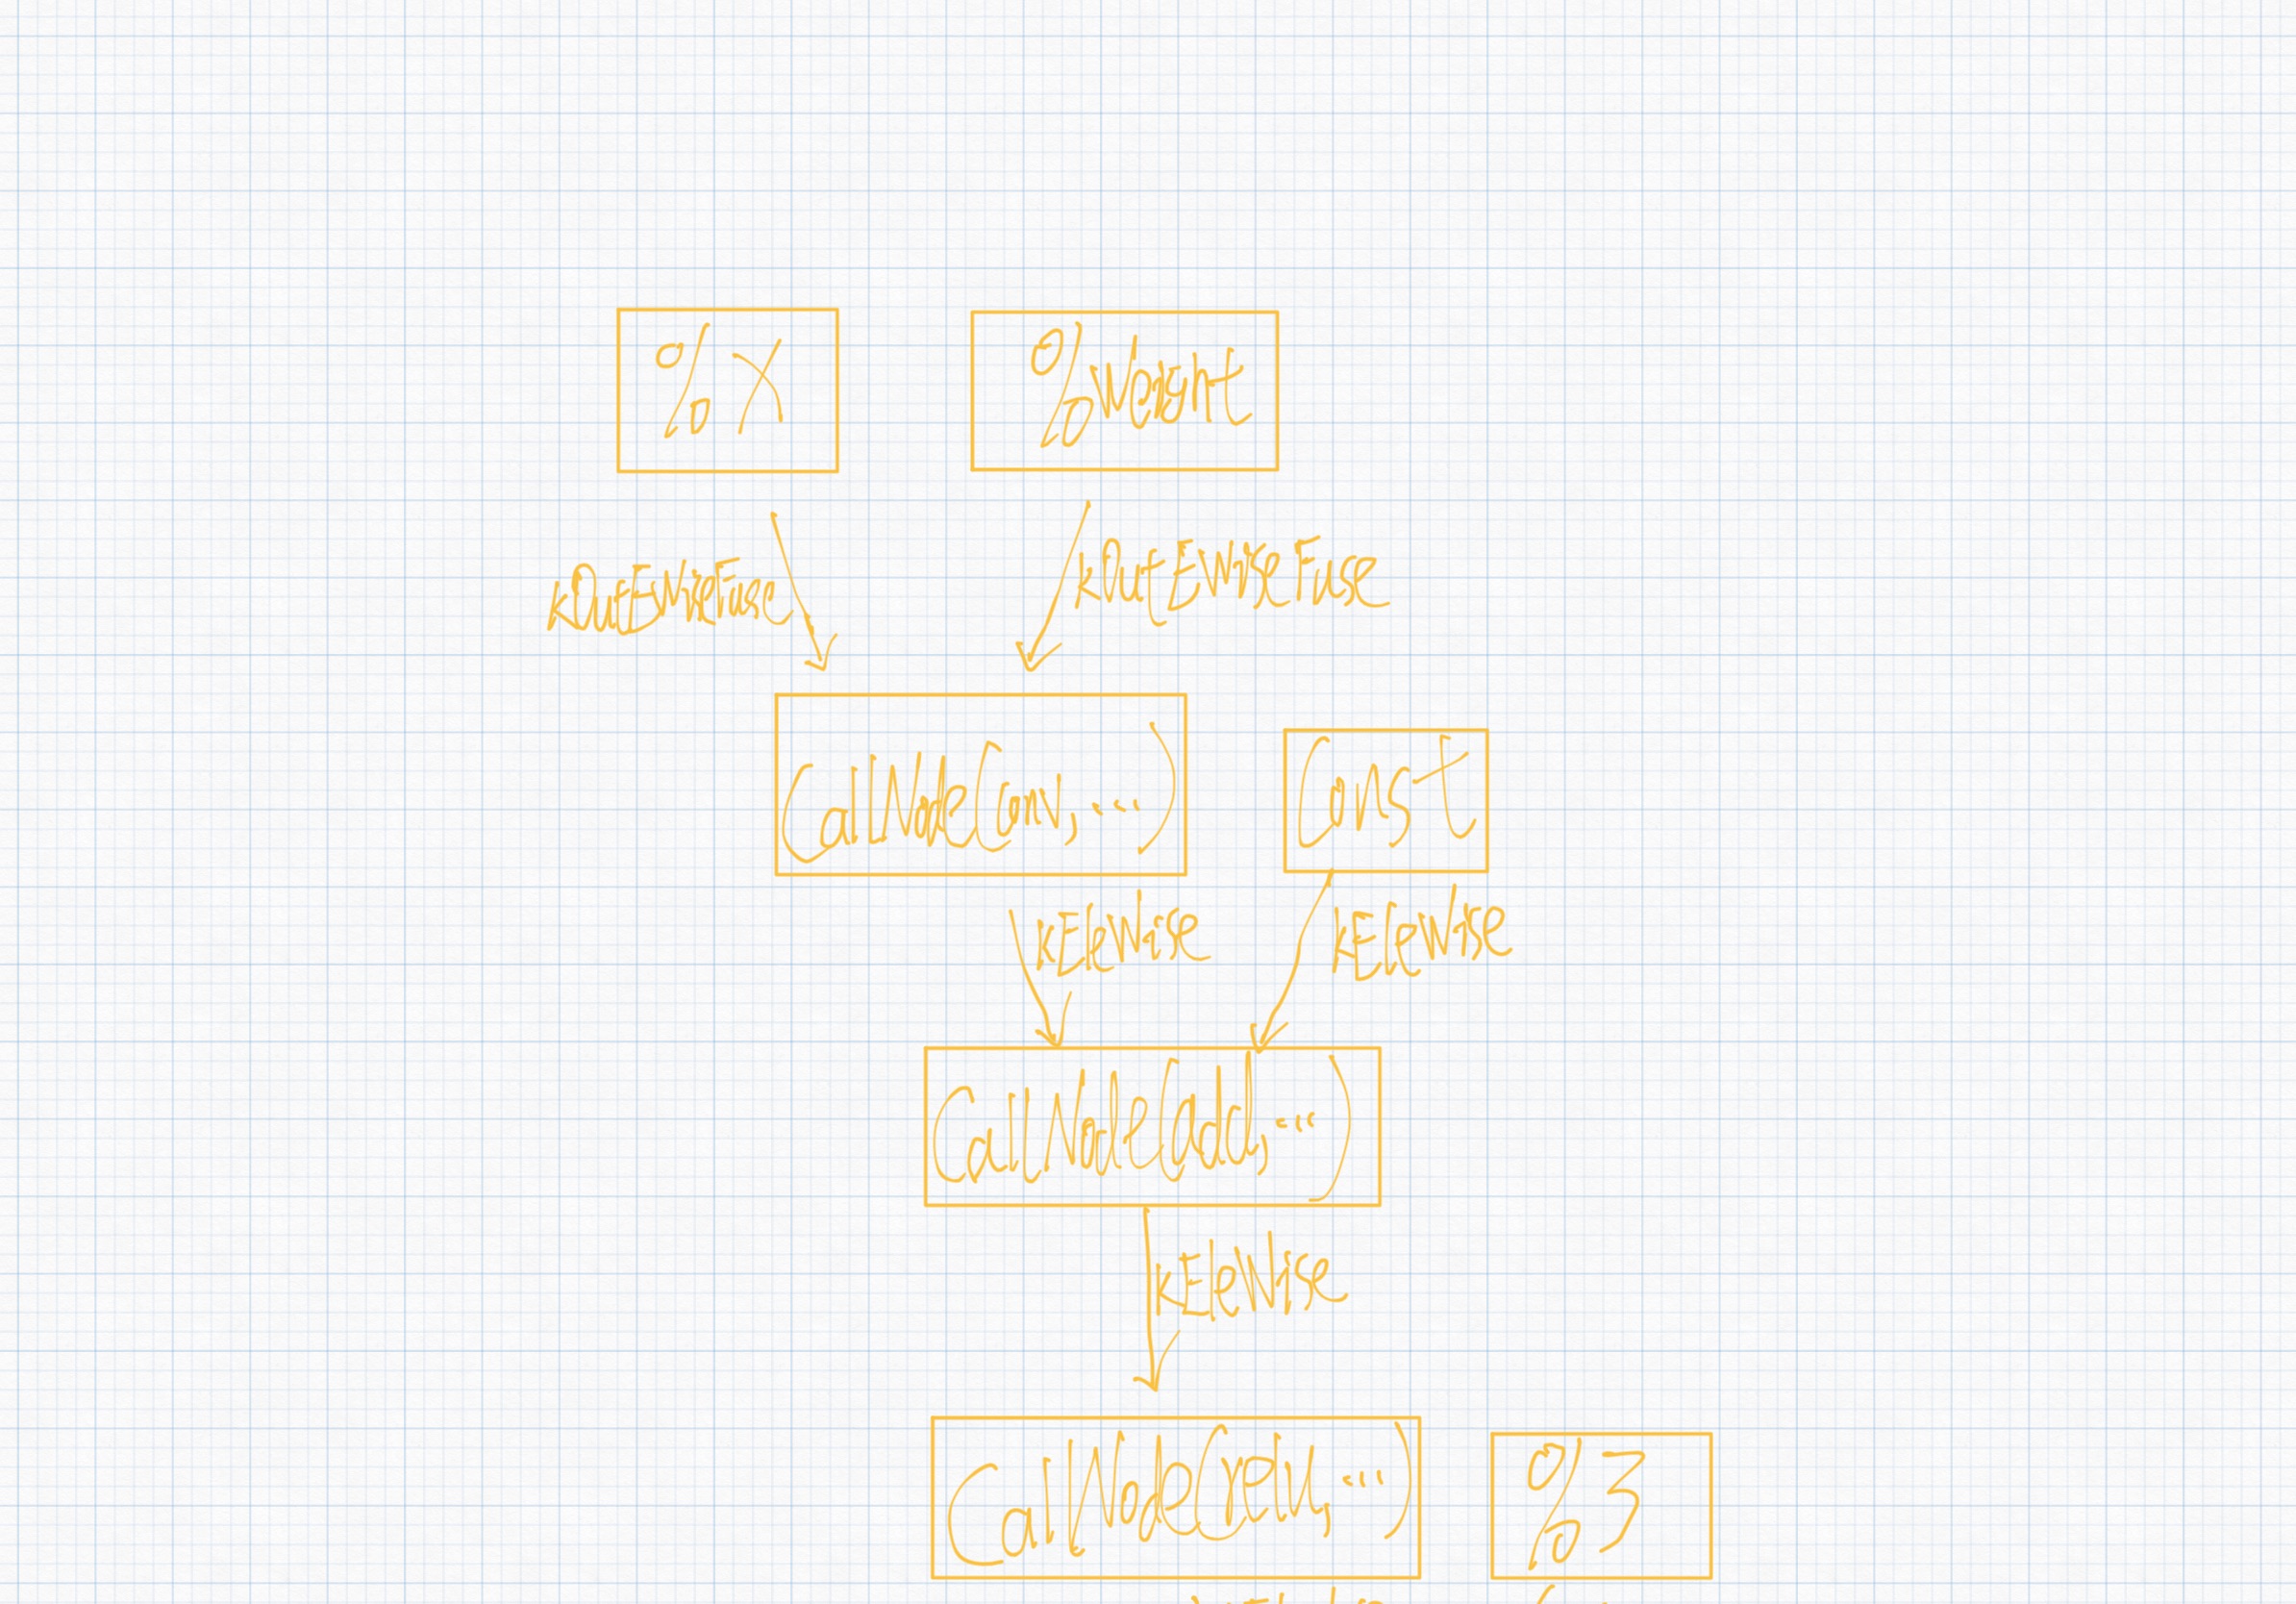 %X
%Weight
kOutEWiseFuse
kOutEWiseFuse
CallNode(Conv, ...)
Const
kEleWise
kEleWise
CallNode(add, ...)
kEleWise
CallNode(relu, ...)
%3